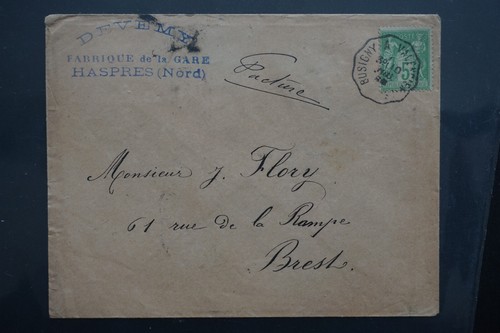 DEVEMY
FABRIQUE de la GARE
HASPRES (Nord)
Facture
BUSIGNY A
Monsieur J. Flory
61 rue de la Rampe
Brest.